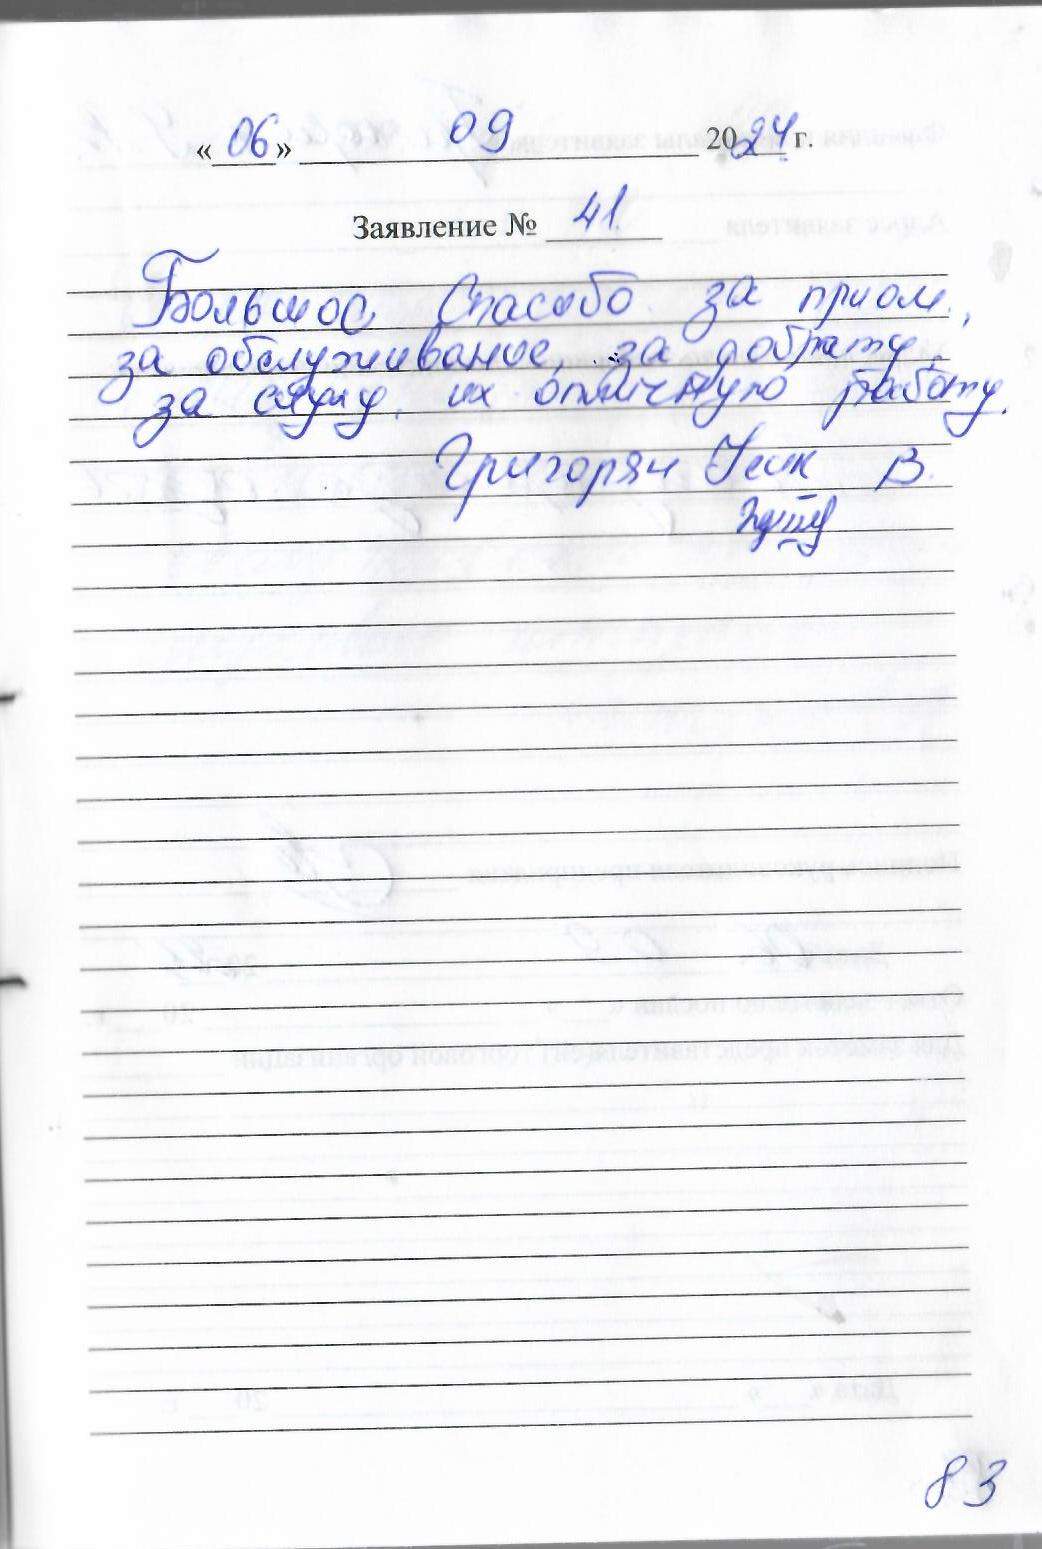 «06» 09 2024 г.
Заявление № 41
Большое Спасибо за прием,
за обслуживание, за доброту,
за их отличную работу.
Григорян В.
83